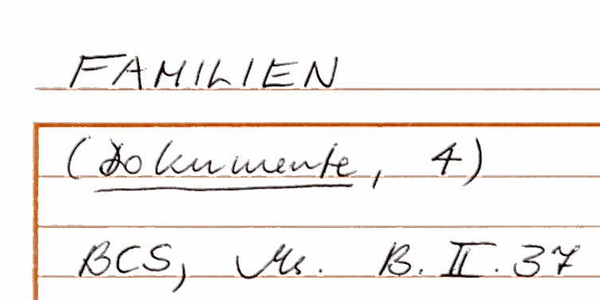 FAMILIEN
(Dokumente, 4)
BCS, Ms. B.II.37